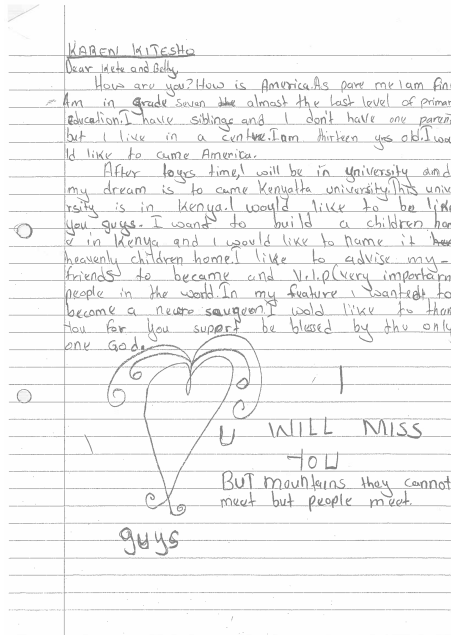 KAREN KITESHO
Dear Kete and Betty,
How are you? How is America. As pare me I am fin
Am in grade seven the almost the last level of primar
education. I have siblings and I don't have one paren
but I live in a centre. I am thirteen yrs old. I wou
ld like to came America.
After 10yrs time, I will be in university and
my dream is to came Kenyatta university. This univ
rsity is in Kenya. I would like to be lik
you guys. I want to build a children hom
e in Kenya and I would like to name it
heavenly children home. I like to advise my
friends to became and V.I.P (very importan
people in the word. In my feature I wanted to
become a neuro saugeon. I wold like to than
you for you support be blessed by the only
one God.
I
U WILL MISS
YOU
BUT mountains they cannot
meet but people meet.
guys